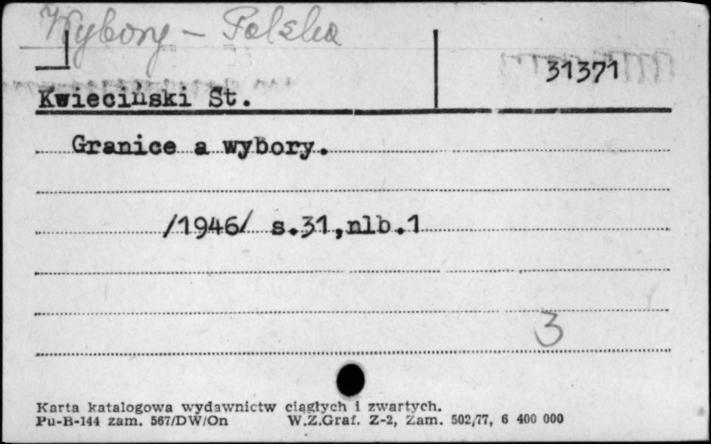 Wybory - Polska
31371
Kwieciński St.
Granice a wybory.
/1946/ s.31,nlb.1
3
Karta katalogowa wydawnictw ciągłych i zwartych.
Pu-B-144 zam. 567/DW/On W.Z.Graf. Z-2, Zam. 502/77, 6 400 000